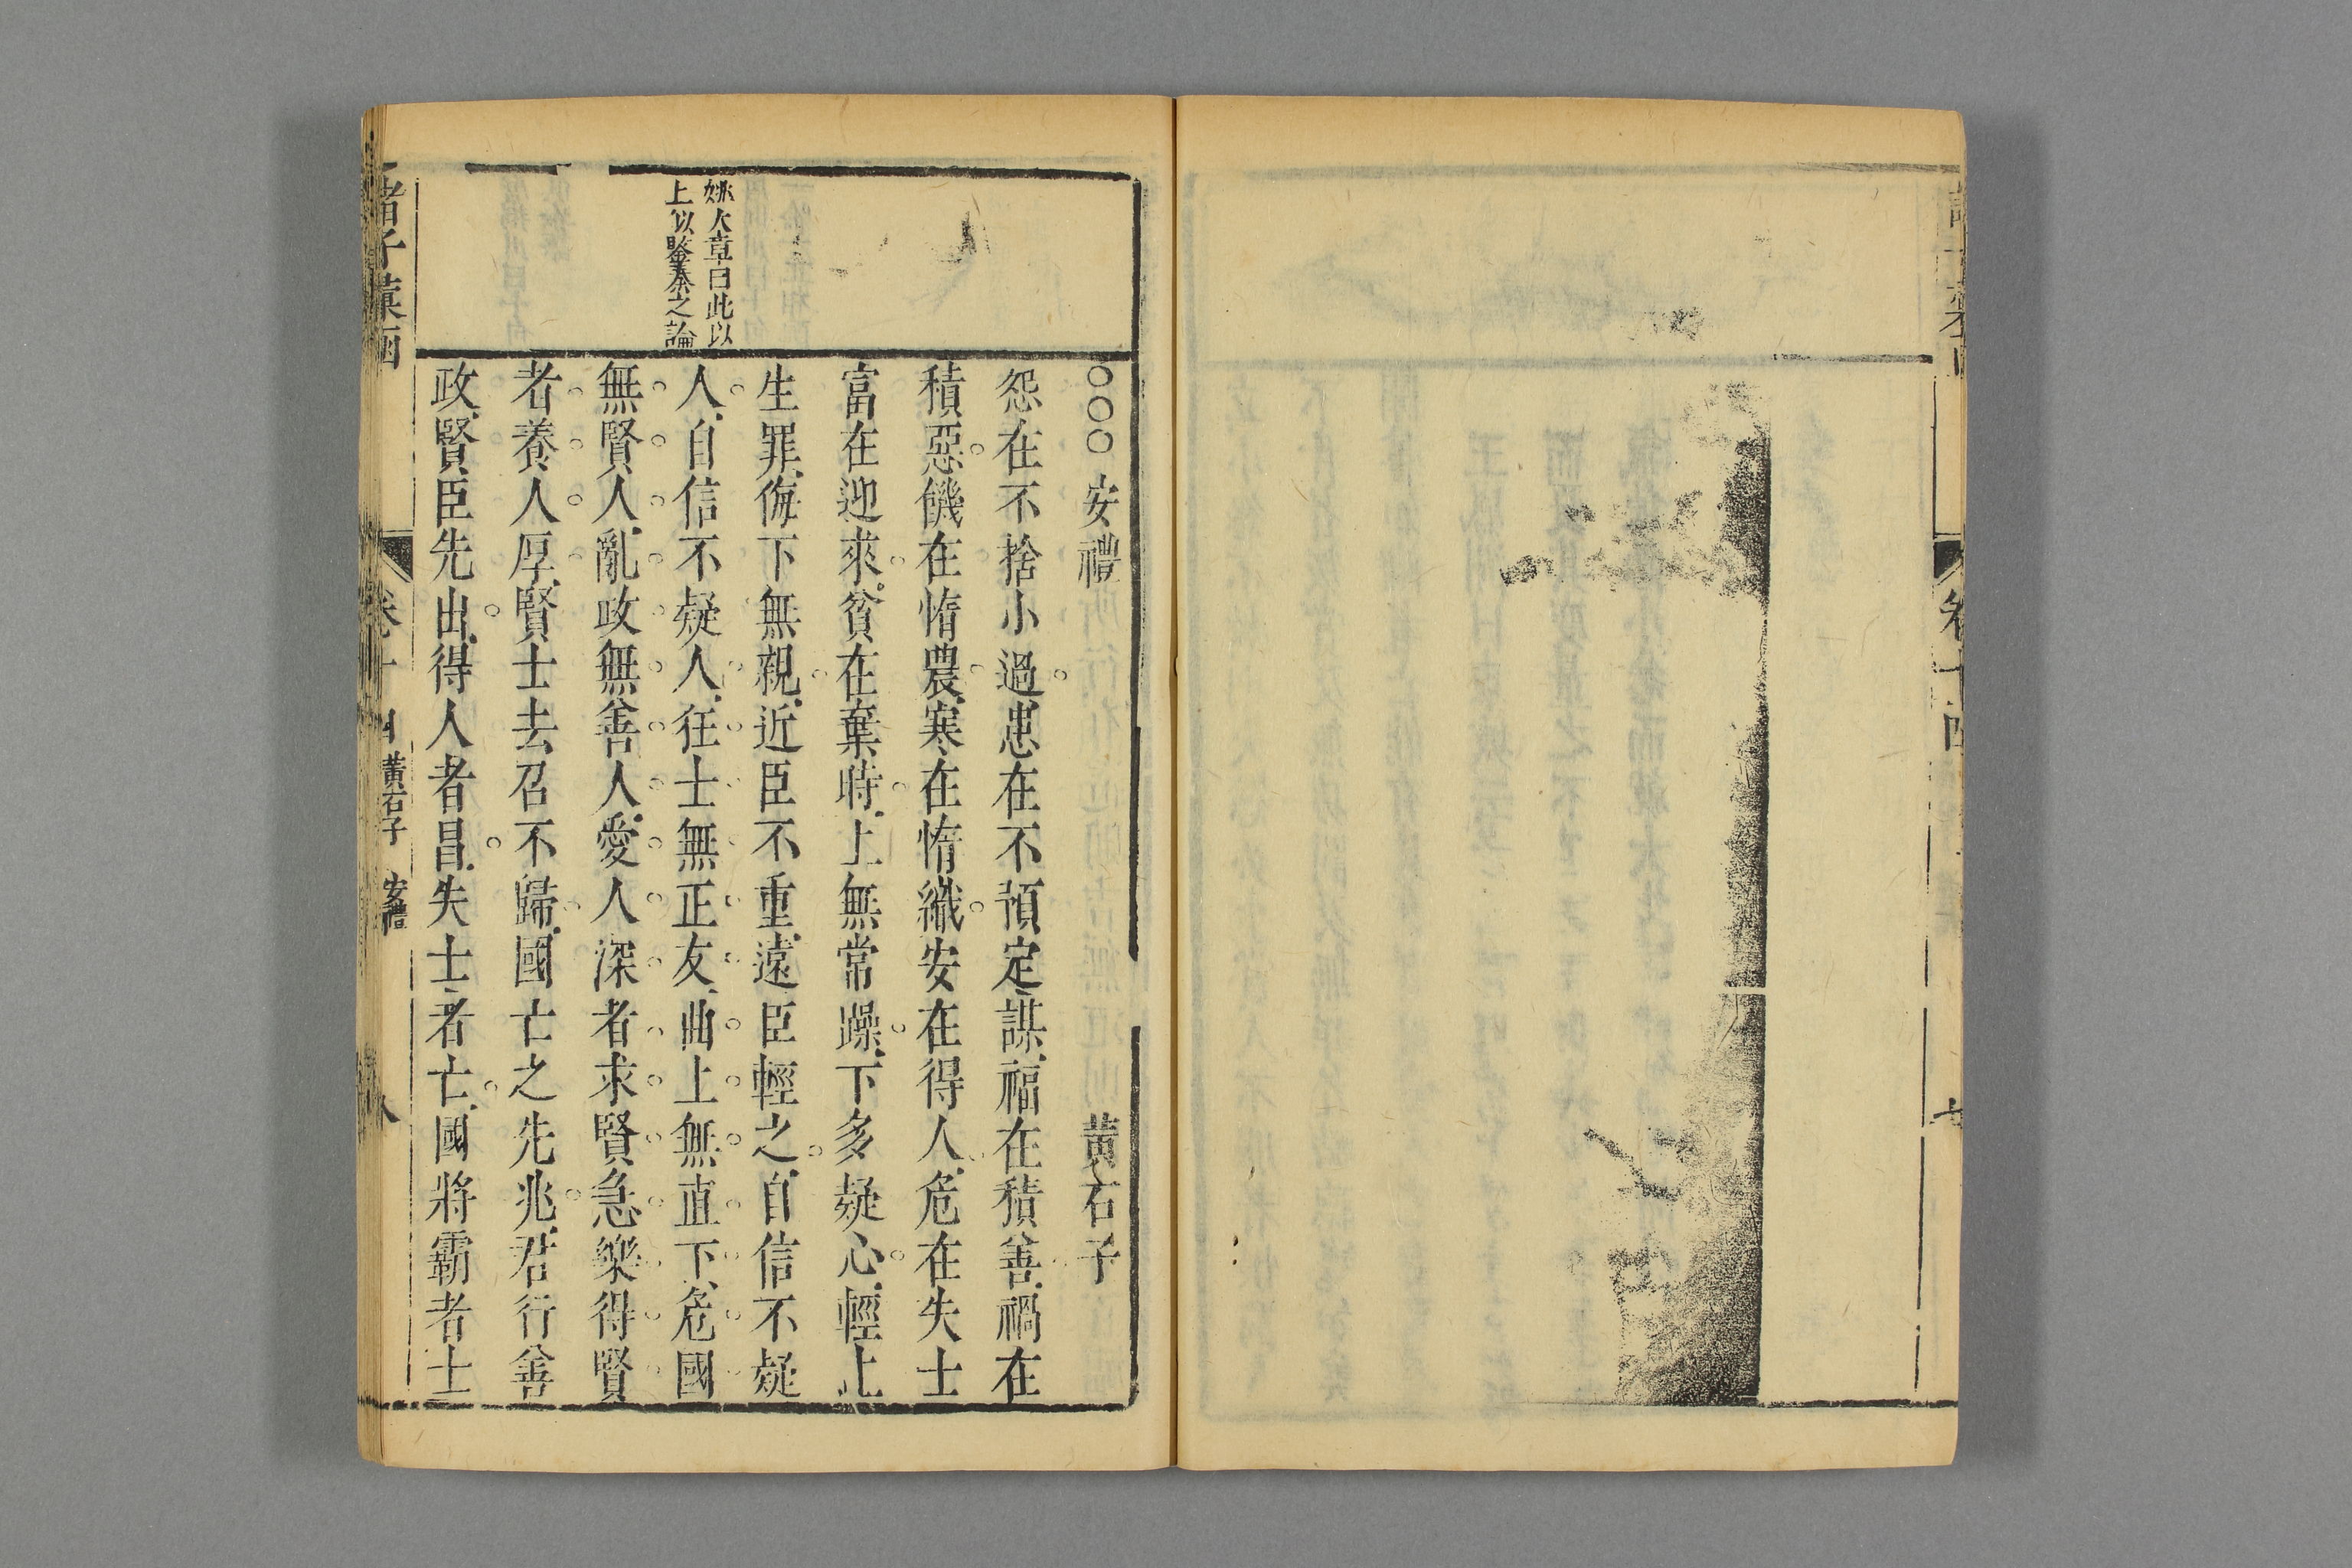 ○○○安禮 黄石子
怨在不捨小過患在不預定謀福在積善禍在
積惡饑在惰農寒在惰織安在得人危在失士
富在迎來貧在棄時上無常躁下多疑心輕上
生罪侮下無親近臣不重遠臣輕之自信不疑
人自信不疑人枉士無正友曲上無直下危國
無賢人亂政無善人愛人深者求賢急樂得賢
者養人厚賢士去召不歸國亡之先兆君行善
政賢臣先出得人者昌失士者亡國將霸者士
姚人章曰此以
上似鑒秦之論
諸子彙函
卷十四 黄石子 安禮
八
卷十四